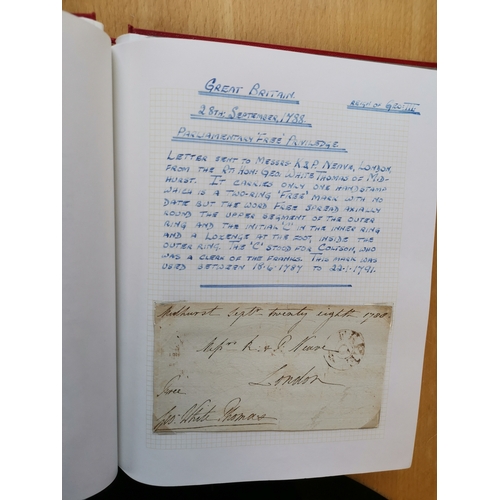 GREAT BRITAIN.
REIGN OF GEO III
28TH SEPTEMBER, 1788.
PARLIAMENTARY 'FREE' PRIVILEDGE
LETTER SENT TO MESSRS R & P. NEAVE, LONDON,
FROM THE RT HON: GEO WHITE THOMAS OF MID-
HURST. IT CARRIES ONLY ONE HANDSTAMP
WHICH IS A TWO-RING 'FREE' MARK WITH NO
DATE BUT THE WORD FREE SPREAD AXIALLY
ROUND THE UPPER SEGMENT OF THE OUTER
RING AND THE INITIAL 'C' IN THE INNER RING
AND A LOZENGE AT THE FOOT, INSIDE THE
OUTER RING. THE 'C' STOOD FOR COLTSON, WHO
WAS A CLERK OF THE FRANKS. THIS MARK WAS
USED BETWEEN 18-4-1787 TO 22-1-1791.
Midhurst Septr. twenty eighth 1788
Messrs R & P. Neave
London
Free
Geo: White Thomas